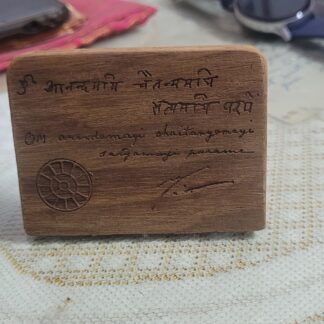 ॐ आनन्दमयि चैतन्यमयि
सत्यमयि परमे
OM anandamayi chaitanyamayi
satyamayi parame